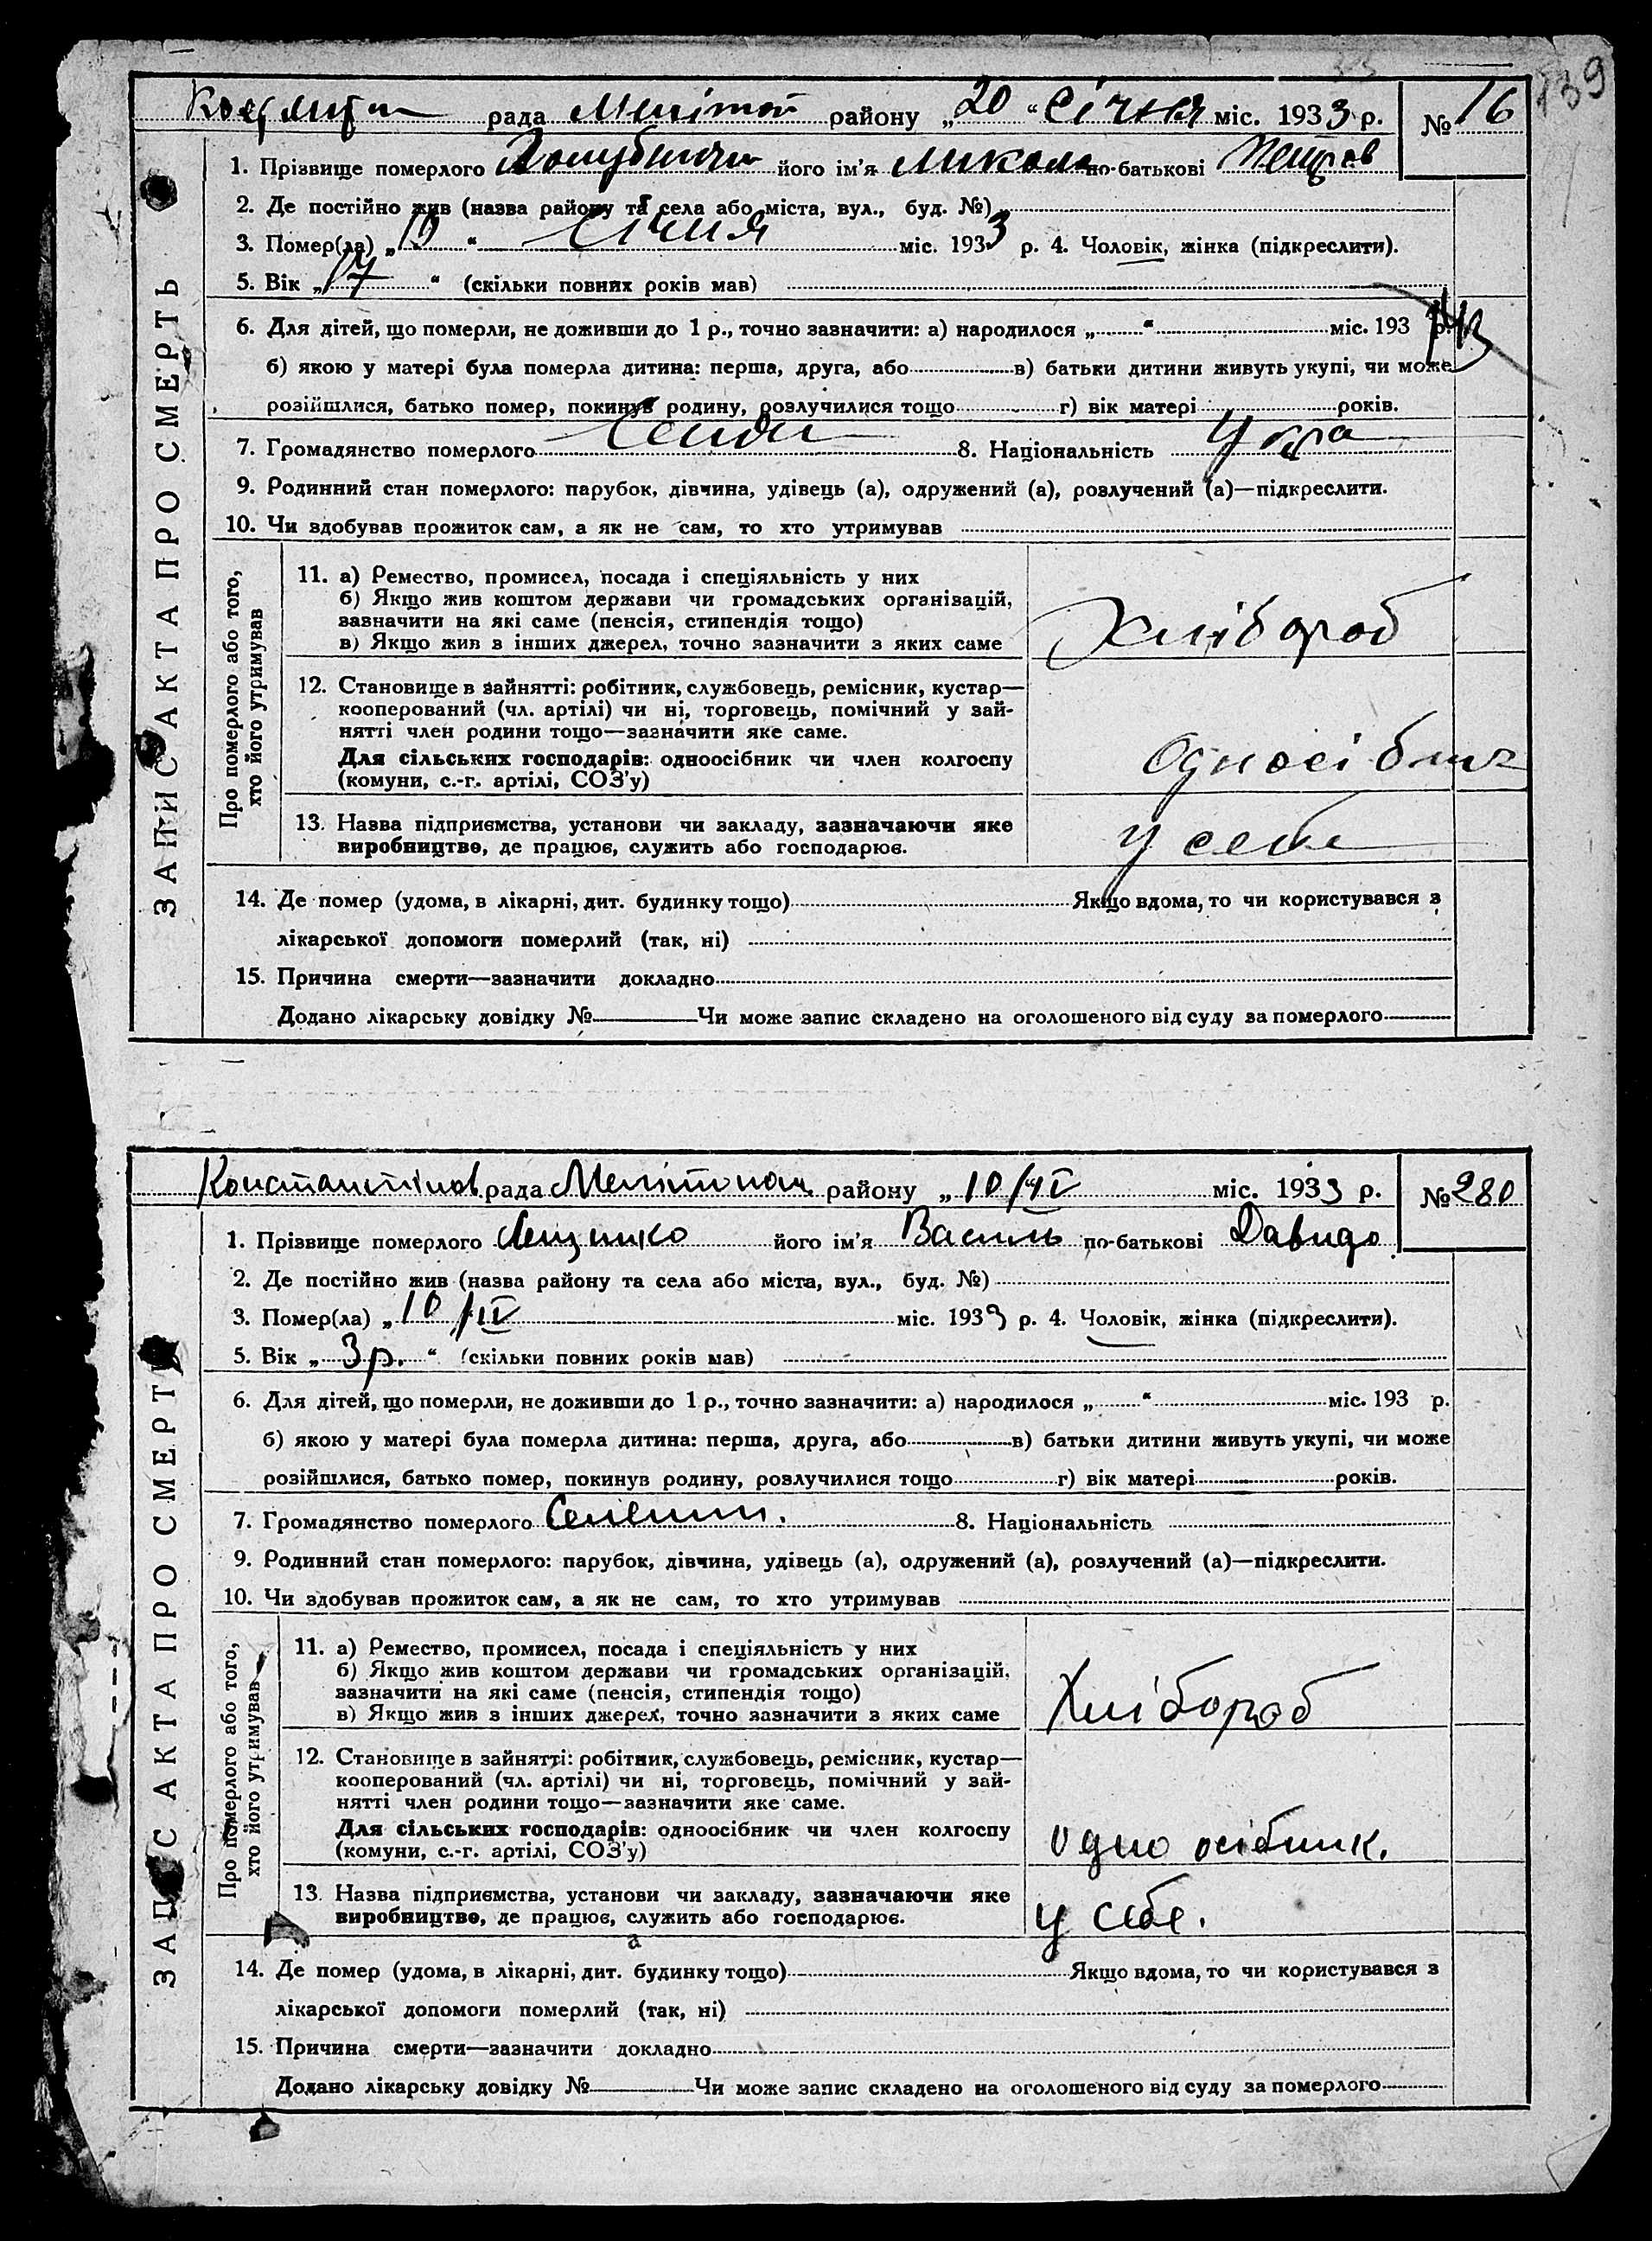 139
рада Меліто району „20“ Січня міс. 1933 р. № 16
1. Прізвище померлого його ім'я Микола по-батькові Петров
2. Де постійно жив (назва району та села або міста, вул., буд. №)
3. Помер(ла) „ “ Січня міс. 1933 р. 4. Чоловік, жінка (підкреслити).
5. Вік „ “ (скільки повних років мав)
6. Для дітей, що померли, не доживши до 1 р., точно зазначити: а) народилося „ “ міс. 193 р.
б) якою у матері була померла дитина: перша, друга, або в) батьки дитини живуть укупі, чи може
розійшлися, батько помер, покинув родину, розлучилися тощо г) вік матері років.
7. Громадянство померлого 8. Національність Укра
9. Родинний стан померлого: парубок, дівчина, удівець (а), одружений (а), розлучений (а)—підкреслити.
10. Чи здобував прожиток сам, а як не сам, то хто утримував
ЗАПИС АКТА ПРО СМЕРТЬ
Про померлого або того,
хто його утримував
11. а) Ремество, промисел, посада і спеціяльність у них
б) Якщо жив коштом держави чи громадських організацій,
зазначити на які саме (пенсія, стипендія тощо)
в) Якщо жив з інших джерел, точно зазначити з яких саме
Хлібороб
12. Становище в зайнятті: робітник, службовець, ремісник, кустар—
кооперований (чл. артілі) чи ні, торговець, помічний у зай-
нятті член родини тощо—зазначити яке саме.
Для сільських господарів: одноосібник чи член колгоспу
(комуни, с.-г. артілі, СОЗ'у)
Односібник
13. Назва підприємства, установи чи закладу, зазначаючи яке
виробництво, де працює, служить або господарює.
У себе
14. Де помер (удома, в лікарні, дит. будинку тощо) Якщо вдома, то чи користувався з
лікарської допомоги померлий (так, ні)
15. Причина смерти—зазначити докладно
Додано лікарську довідку № Чи може запис складено на оголошеного від суду за померлого
Константінов рада Мелітопол району „10/IV міс. 1933 р. № 280
1. Прізвище померлого його ім'я Василь по-батькові Давидо
2. Де постійно жив (назва району та села або міста, вул., буд. №)
3. Помер(ла) „10/IV міс. 1933 р. 4. Чоловік, жінка (підкреслити).
5. Вік „3 р.“ (скільки повних років мав)
6. Для дітей, що померли, не доживши до 1 р., точно зазначити: а) народилося „ “ міс. 193 р.
б) якою у матері була померла дитина: перша, друга, або в) батьки дитини живуть укупі, чи може
розійшлися, батько помер, покинув родину, розлучилися тощо г) вік матері років.
7. Громадянство померлого 8. Національність
9. Родинний стан померлого: парубок, дівчина, удівець (а), одружений (а), розлучений (а)—підкреслити.
10. Чи здобував прожиток сам, а як не сам, то хто утримував
ЗАПИС АКТА ПРО СМЕРТЬ
Про померлого або того,
хто його утримував
11. а) Ремество, промисел, посада і спеціяльність у них
б) Якщо жив коштом держави чи громадських організацій,
зазначити на які саме (пенсія, стипендія тощо)
в) Якщо жив з інших джерел, точно зазначити з яких саме
Хлібороб
12. Становище в зайнятті: робітник, службовець, ремісник, кустар—
кооперований (чл. артілі) чи ні, торговець, помічний у зай-
нятті член родини тощо—зазначити яке саме.
Для сільських господарів: одноосібник чи член колгоспу
(комуни, с.-г. артілі, СОЗ'у)
одно осібник.
13. Назва підприємства, установи чи закладу, зазначаючи яке
виробництво, де працює, служить або господарює.
у себе.
14. Де помер (удома, в лікарні, дит. будинку тощо) Якщо вдома, то чи користувався з
лікарської допомоги померлий (так, ні)
15. Причина смерти—зазначити докладно
Додано лікарську довідку № Чи може запис складено на оголошеного від суду за померлого